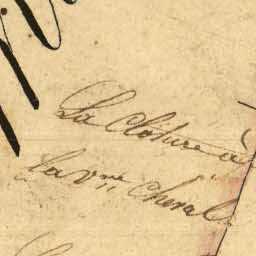 La Clôture à
la Vve Cheval